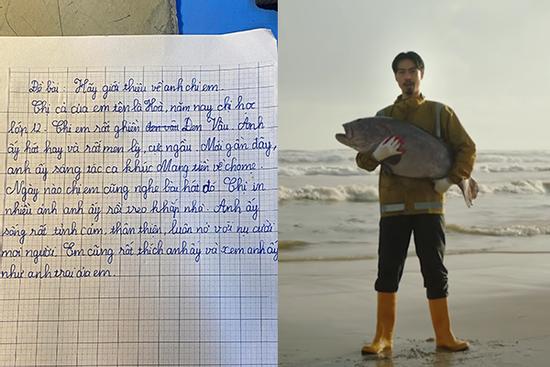 Đề bài : Hãy giới thiệu về anh chị em.
Chị cả của em tên là Hoà, năm nay chị học
lớn 12. Chị em rất ghiền đen vâu Đen Vâu. Anh
ấy hát hay và rất men lỳ, cực ngầu. Mới gần đây,
anh ấy sáng tác ca khúc Mang tiền về cho mẹ.
Ngày nào chị em cũng nghe bài hát đó. Chị in
nhiều ảnh anh ấy rồi treo khắp nhà. Anh ấy
sống rất tình cảm, thân thiện, luôn nở nụ cười
mọi người. Em cũng rất thích anh ấy và xem anh ấy
như anh trai của em.